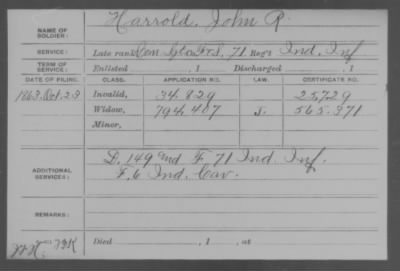 NAME OF SOLDIER: Harrold, John R.
SERVICE: Late rank Regt Ind. Inf.
TERM OF SERVICE: Enlisted , 1 Discharged , 1
DATE OF FILING. CLASS. APPLICATION NO. LAW. CERTIFICATE NO.
1863 Oct. 23 Invalid, 34.829 25729
Widow, 794,407 J. 565.371
Minor,
ADDITIONAL SERVICES: D. 149 and F. 71 Ind. Inf.
F. 6 Ind. Cav.
REMARKS:
Died , 1 , at